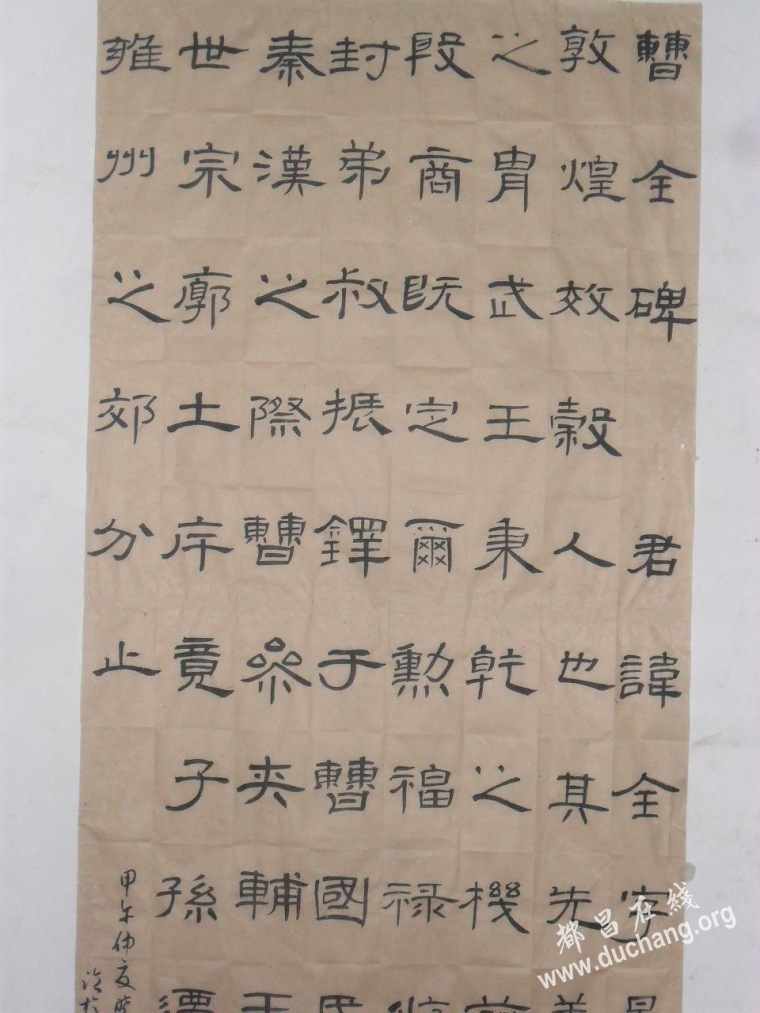 曹全碑 君諱全字景
敦煌效穀人也其先盖
之胄武王秉乾之機翦
殷商既定爾勳福祿攸
封弟叔振鐸于曹國氏
秦漢之際曹參夾輔王
世宗廓土斥竟子孫遷
雍州之郊分止
甲午仲夏
都昌在线
www.duchang.org